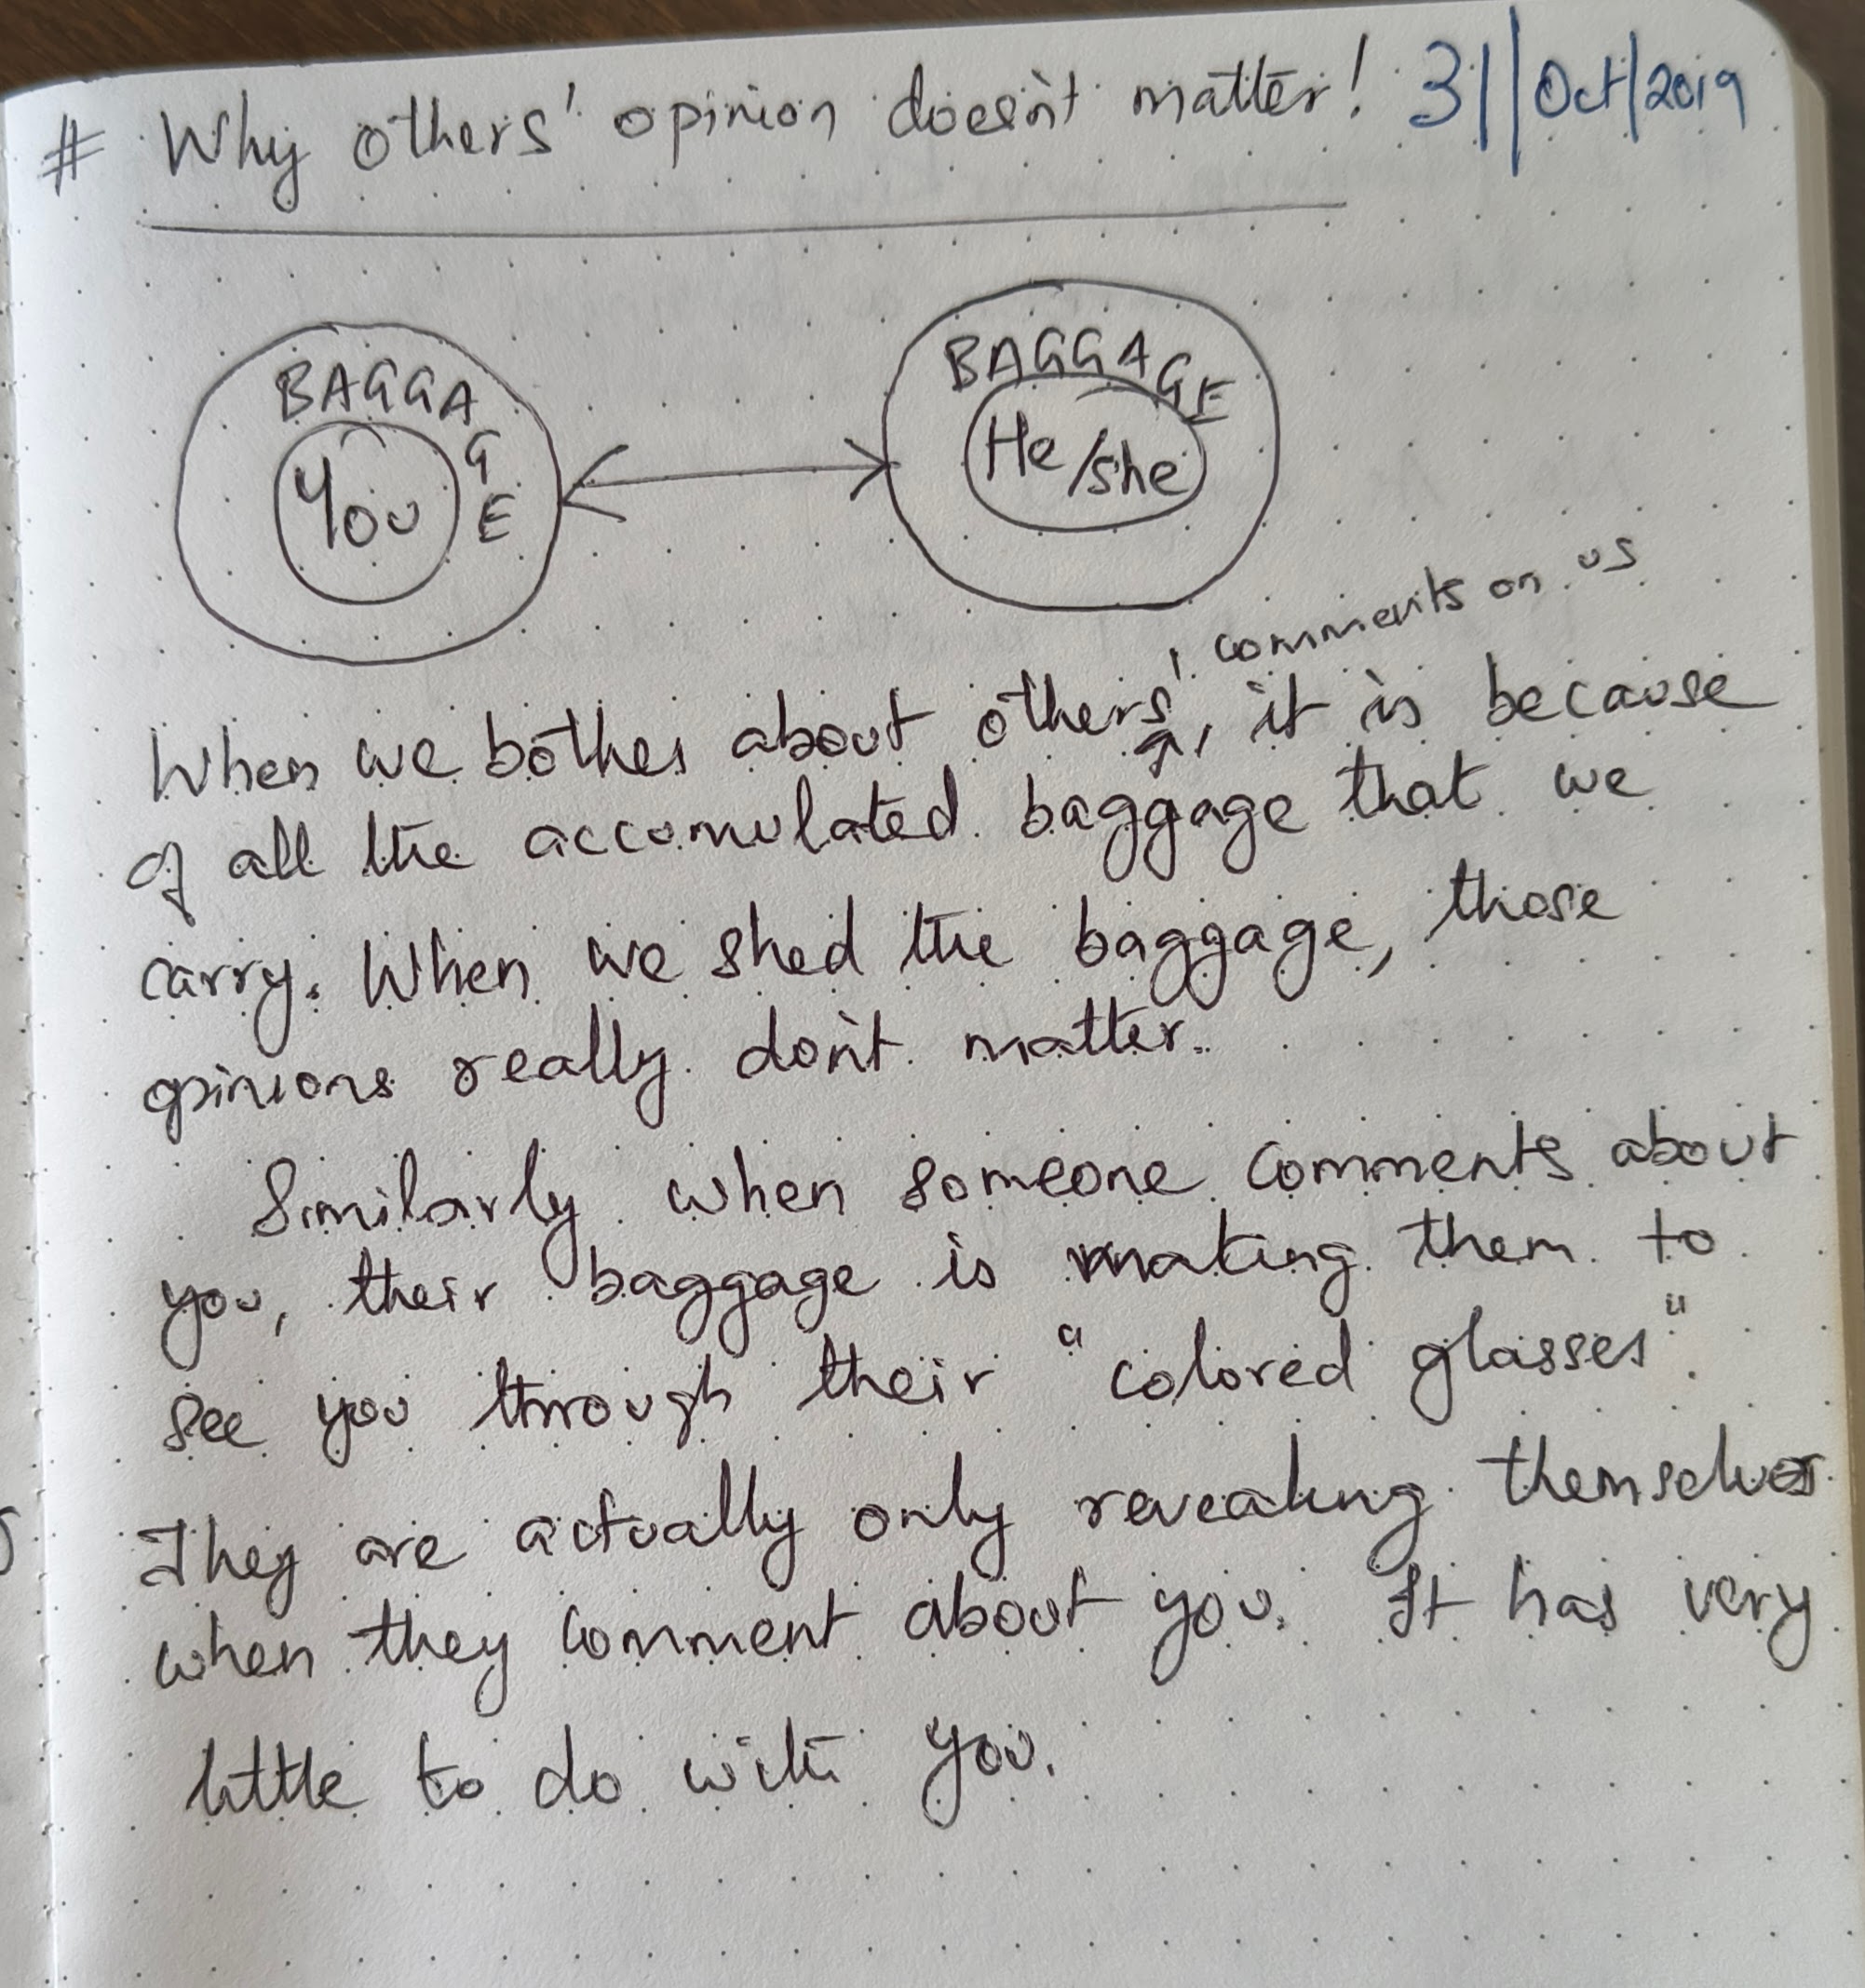 # Why others' opinion doesn't matter! 31/Oct/2019
BAGGAGE
You
BAGGAGE
He/she
comments on us
When we bother about others', it is because
of all the accumulated baggage that we
carry. When we shed the baggage, those
opinions really don't matter.
Similarly when someone comments about
you, their baggage is making them to
see you through their "colored glasses".
They are actually only revealing themselves
when they comment about you. It has very
little to do with you.